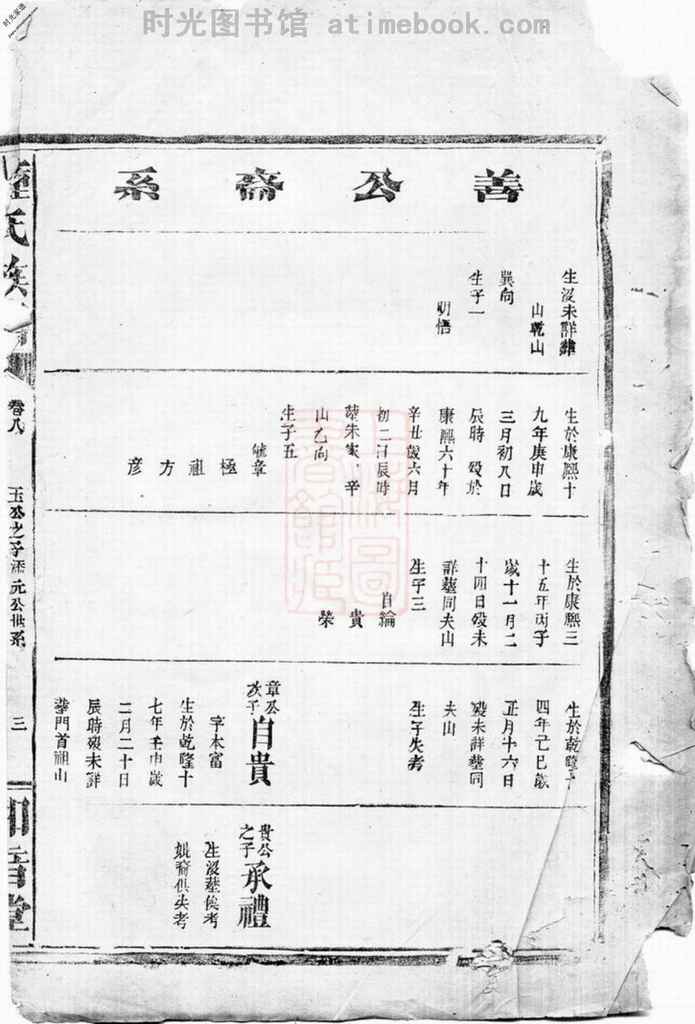 时光图书馆 atimebook.com
善公裔系
生沒未詳葬
山乾山
巽向
生子一
明悟
生於康熙十
九年庚申歲
三月初八日
辰時 歿於
康熙六十年
辛丑歲六月
初二日辰時
葬朱家 辛
山乙向
生子五
毓章
極
祖
方
彦
生於康熙三
十五年丙子
歲十一月二
十四日歿未
詳墓同夫山
生子三
自綸
貴
榮
生於乾隆十
四年己巳歲
正月十六日
歿未詳墓同
夫山
生子失考
章公
次子
自貴
字本富
生於乾隆十
七年壬申歲
二月二十日
辰時歿未詳
葬門首祖山
貴公
之子
承禮
生沒葬俱考
娶裔俱失考
氏族
卷八
玉公之子添元公世系
三